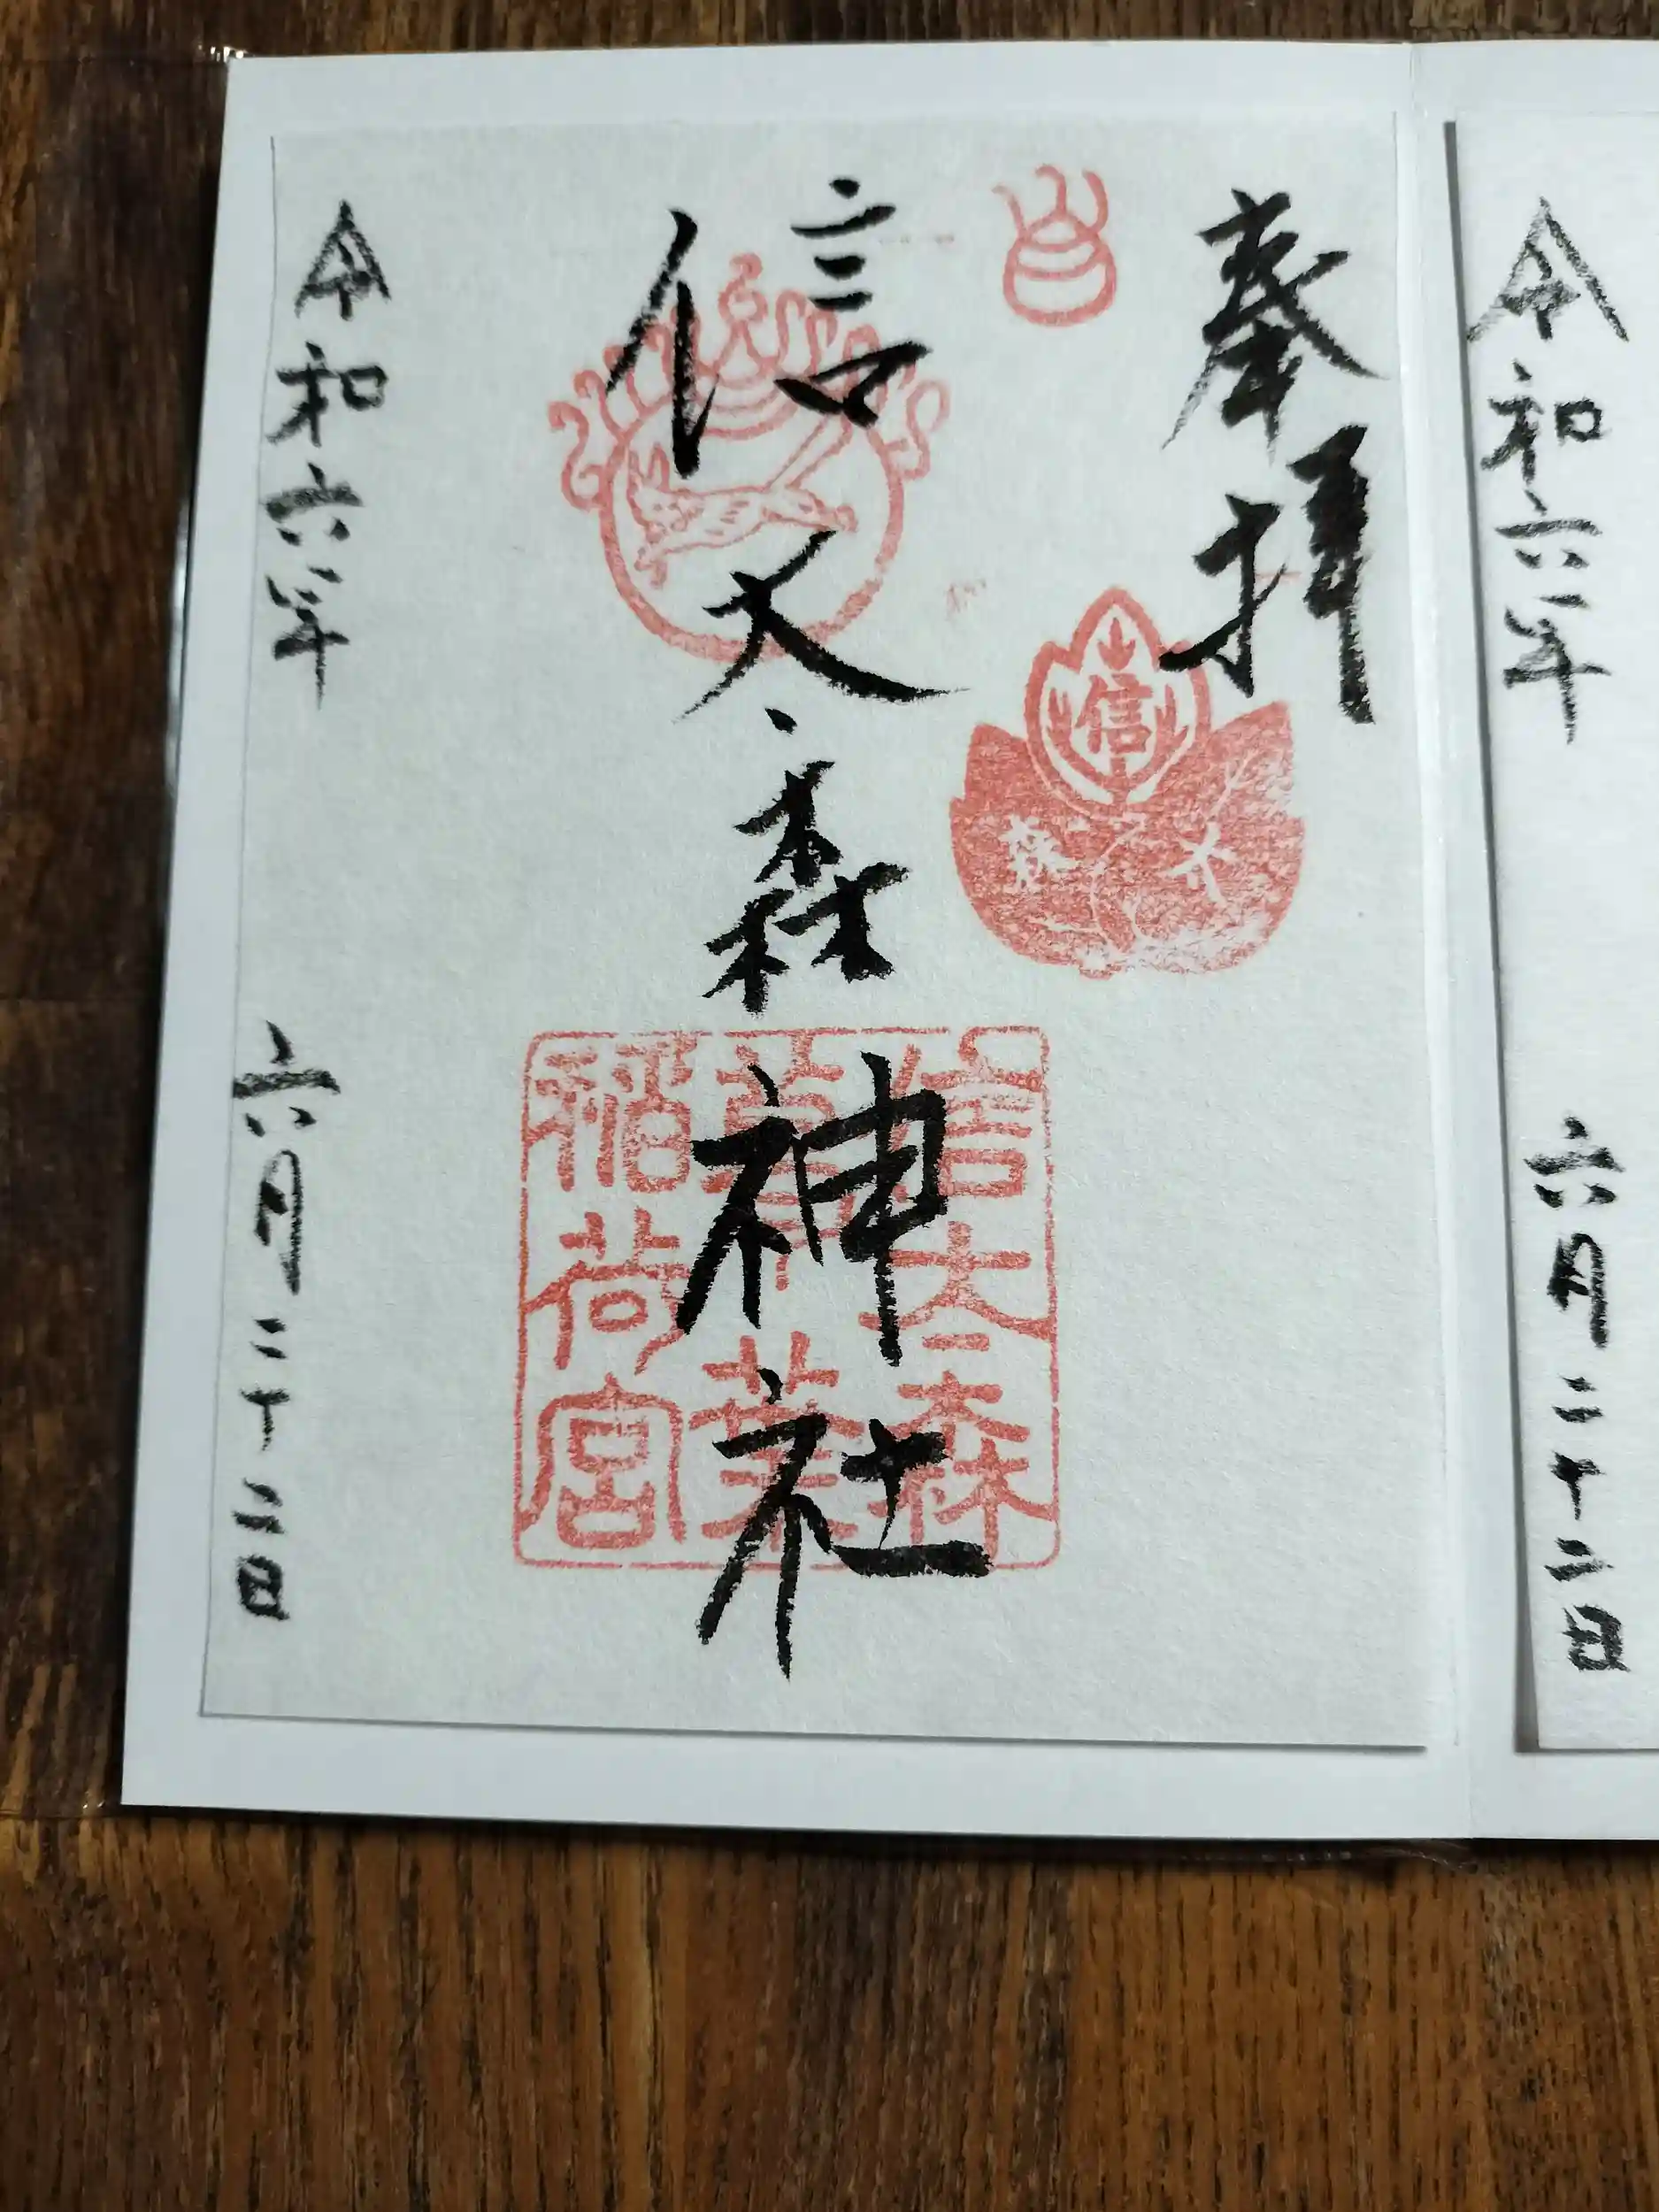 令和六年 六月二十二日
奉拝
信太森
信太森神社
信太森
葛葉
稲荷宮
令和六年 六月二十二日